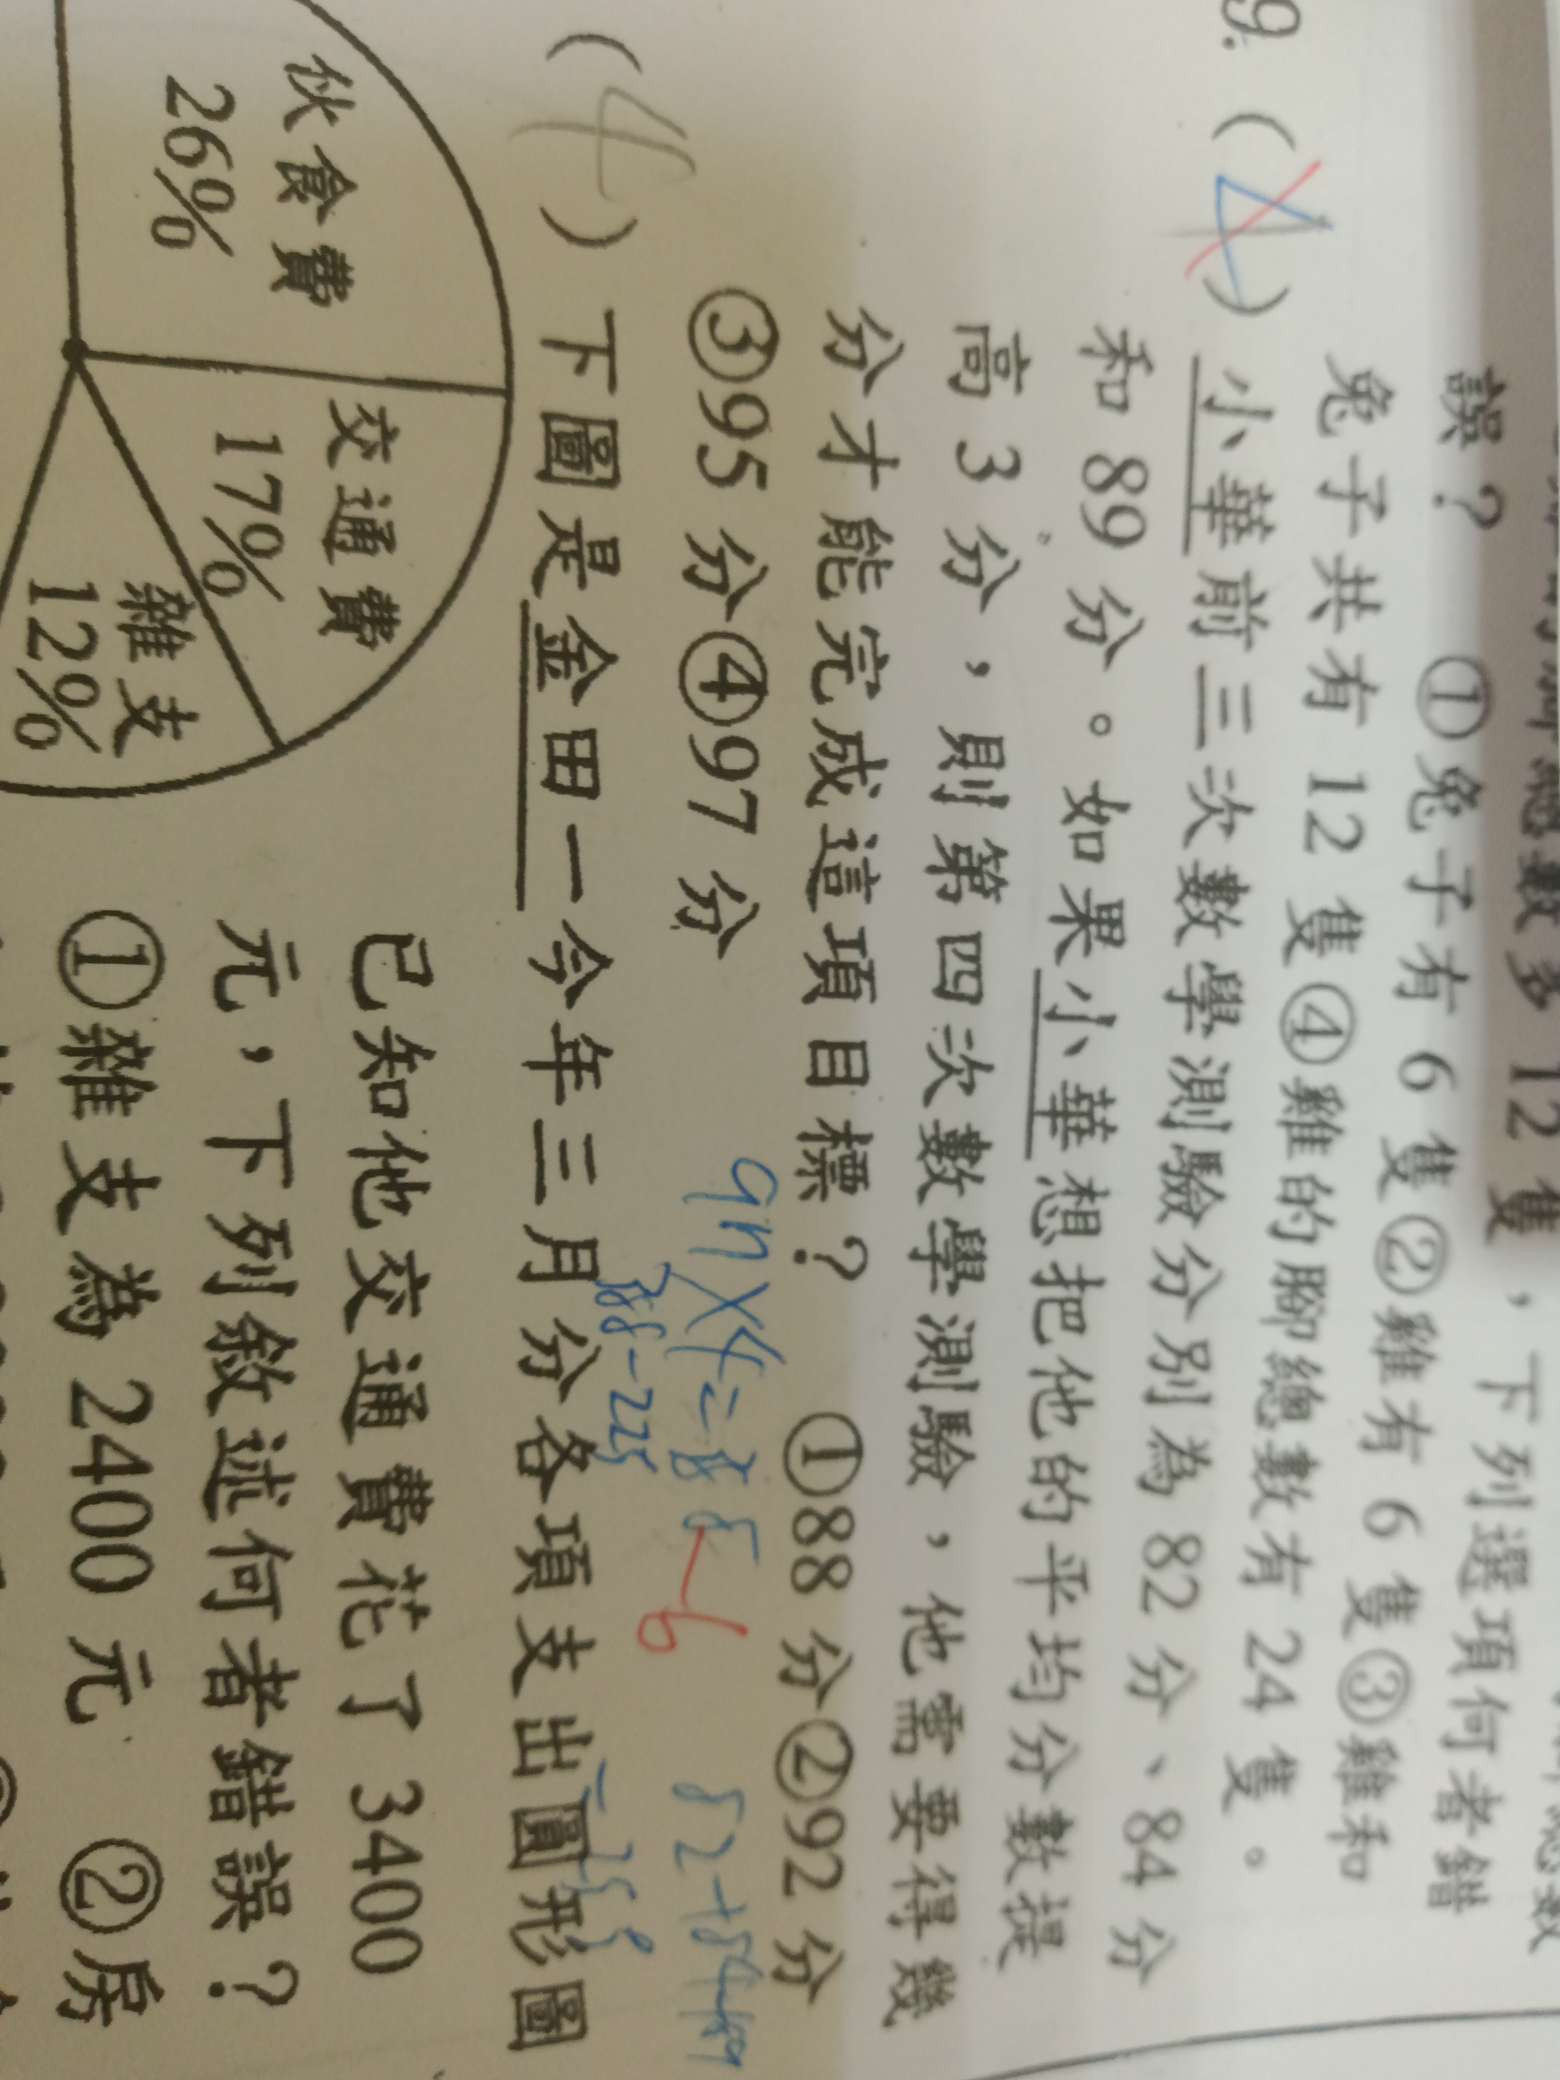 總數多 12 隻，下列選項何者錯
誤？ ①兔子有 6 隻②雞有 6 隻③雞和
兔子共有 12 隻④雞的腳總數有 24 隻。
9. ( ) 小華前三次數學測驗分別為 82 分、84 分
和 89 分。如果小華想把他的平均分數提
高 3 分，則第四次數學測驗，他需要得幾
分才能完成這項目標？ ①88 分②92 分
③95 分④97 分
( 4 ) 下圖是金田一今年三月份各項支出圓形圖
伙食費
26%
交通費
17%
雜支
12%
已知他交通費花了 3400
元，下列敘述何者錯誤？
①雜支為 2400 元 ②房